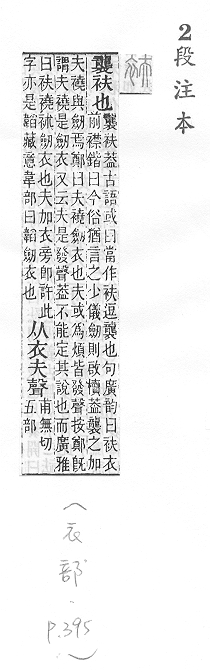 2段注本
袪
襲袪也襲袪葢古語或曰當作袪逗襲也句廣韵曰袪衣
前襟鍇曰今俗猶言之少儀劒則啟櫝葢襲之加
夫襓與劒焉鄭曰夫襓劒衣也夫或為煩皆發聲按鄭旣
謂夫襓是劒衣又云夫是發聲葢不能定其說也而廣雅
曰袪襓袱劒衣也夫加衣旁卽許此
字亦是韜藏意韋部曰韜劒衣也
从衣夫聲甫無切五部
(衣部·
P.395)